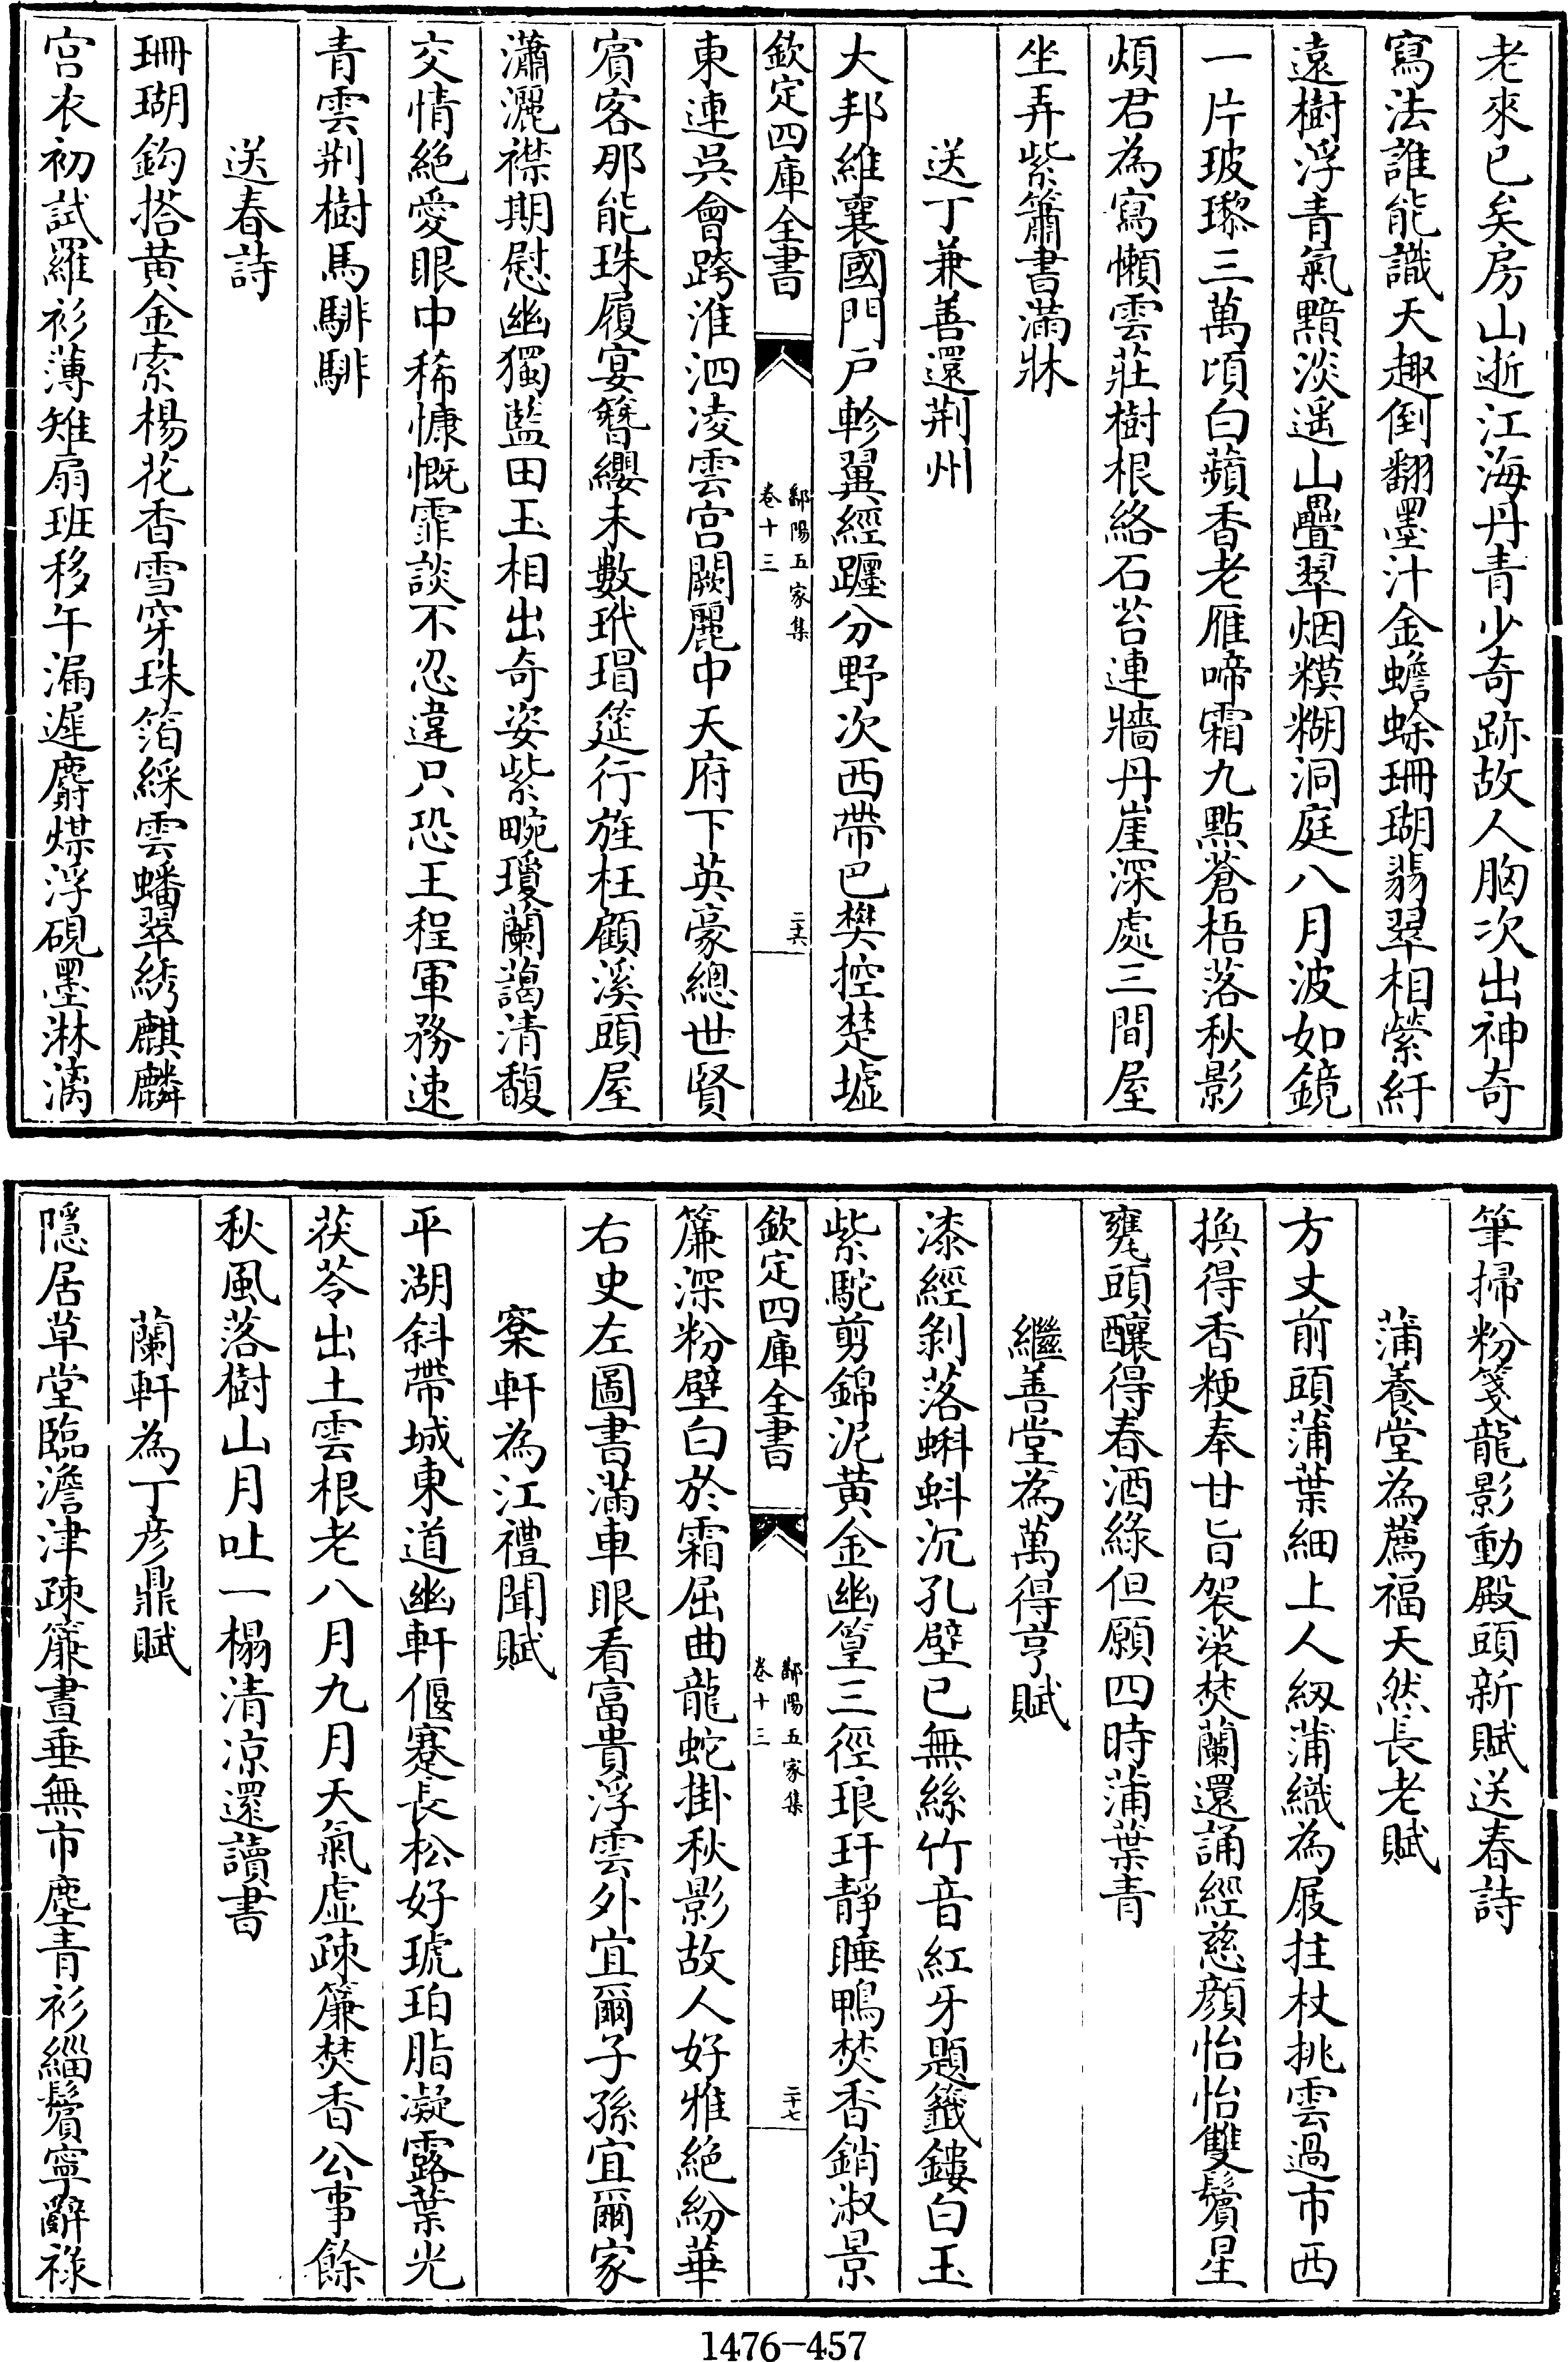 老來已矣房山逝江海丹青少奇跡故人胸次出神奇
寫法誰能識天趣倒翻墨汁金蟾蜍珊瑚翡翠相縈紆
遠樹浮青氣黯淡遥山疊翠烟糢糊洞庭八月波如鏡
一片玻瓈三萬頃白蘋香老雁啼霜九點蒼梧落秋影
煩君為寫懶雲莊樹根絡石苔連牆丹崖深處三間屋
坐弄紫簫書滿牀
送丁兼善還荆州
大邦維襄國門戶軫翼經躔分野次西帶巴樊控楚墟
欽定四庫全書
鄱陽五家集
卷十三
二十六
東連吳會跨淮泗凌雲宮闕麗中天府下英豪總世賢
賓客那能珠履宴簪纓未數玳瑁筵行旌枉顧溪頭屋
瀟灑襟期慰幽獨監田玉相出奇姿紫畹瓊蘭藹清馥
交情絶愛眼中稀慷慨霏談不忍違只恐王程軍務速
青雲荆樹馬騑騑
送春詩
珊瑚鈎搭黄金索楊花香雪穿珠箔綵雲蟠翠綉麒麟
宮衣初試羅衫薄雉扇班移午漏遲麝煤浮硯墨淋漓
筆掃粉箋龍影動殿頭新賦送春詩
蒲養堂為薦福天然長老賦
方丈前頭蒲葉細上人紉蒲織為屐拄杖挑雲過市西
換得香粳奉甘旨袈裟焚蘭還誦經慈顔怡怡雙鬢星
甕頭釀得春酒綠但願四時蒲葉青
繼善堂為萬得亨賦
漆經剝落蝌蚪沉孔壁已無絲竹音紅牙題籤鏤白玉
紫駝剪錦泥黄金幽篁三徑琅玕靜睡鴨焚香銷淑景
欽定四庫全書
鄱陽五家集
卷十三
二十七
簾深粉壁白於霜屈曲龍蛇掛秋影故人好雅絶紛華
右史左圖書滿車眼看富貴浮雲外宜爾子孫宜爾家
寀軒為江禮聞賦
平湖斜帶城東道幽軒偃蹇長松好琥珀脂凝露葉光
茯苓出土雲根老八月九月天氣虚疎簾焚香公事餘
秋風落樹山月吐一榻清凉還讀書
蘭軒為丁彦鼎賦
隱居草堂臨澹津疎簾晝垂無市塵青衫緇鬢寧辭祿
1476-457